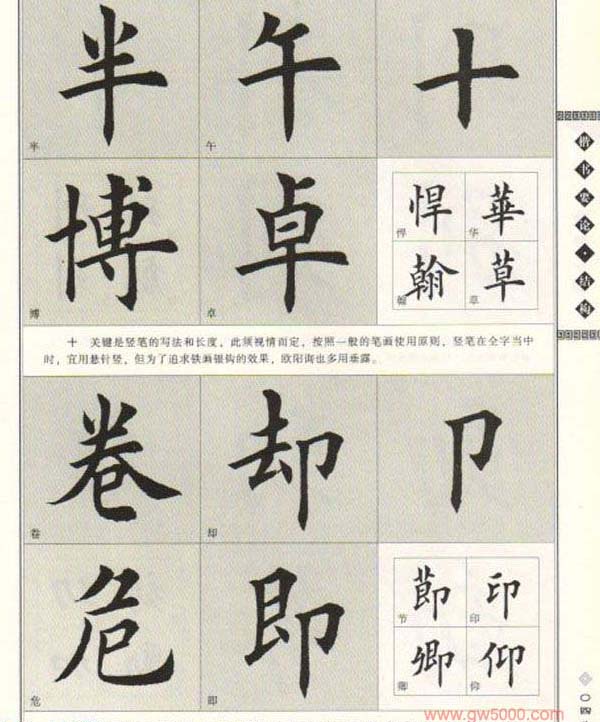 半 午 十
半 午
博 卓 悍 華
悍 华
翰 草
博 卓 翰 草
十 关键是竖笔的写法和长度，此须视情而定，按照一般的笔画使用原则，竖笔在全字当中
时，宜用悬针竖，但为了追求铁画银钩的效果，欧阳询也多用垂露。
卷 却 卩
卷 却
危 即 節 印
节 印
卿 仰
危 即 卿 仰
楷书要论·结构
www.gw5000.com